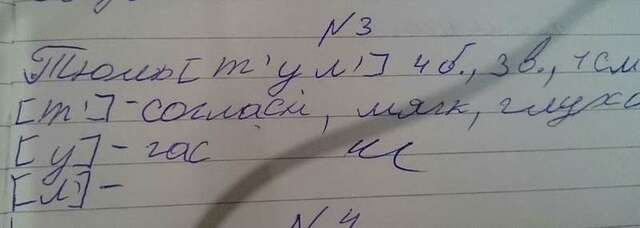 N3
Тюль [т'ул'] 4б., 3в., 1см
[т'] - согласн, мягк, глухо
[у] - гас
[л'] -
N4